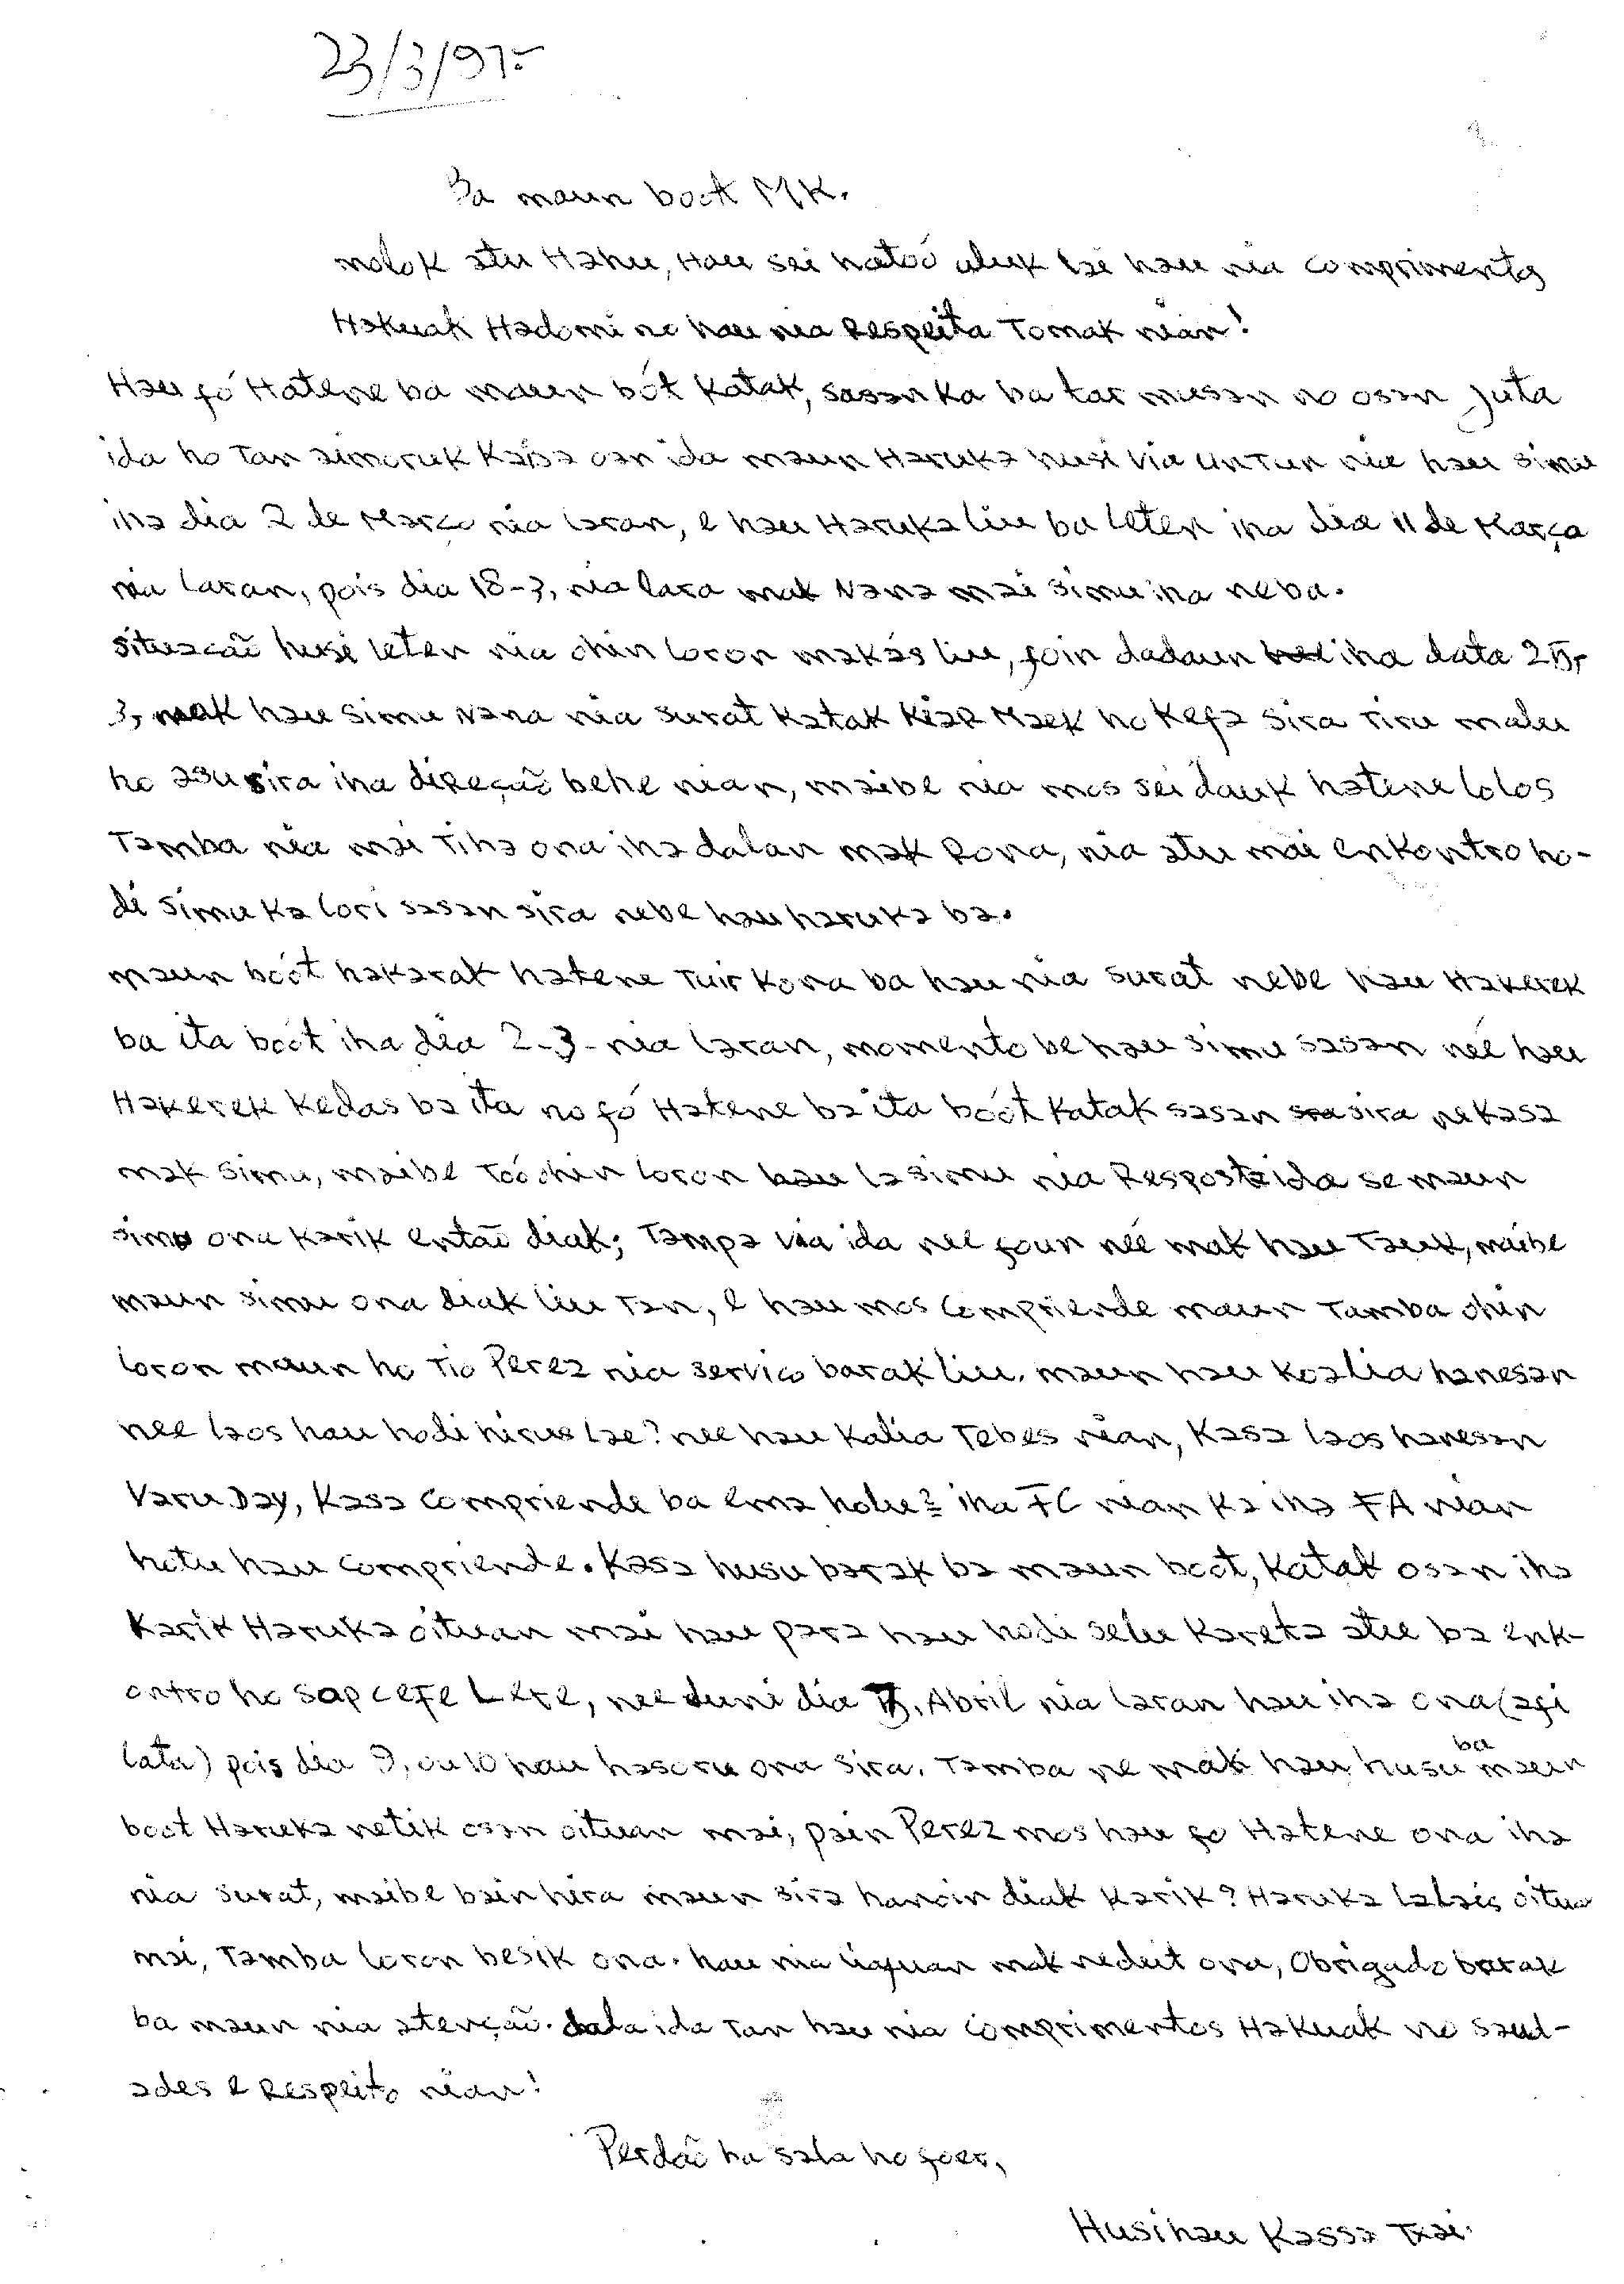 23/3/97.-
Ba maun boot MK.
molok atu Hahu, Hau sei hatoó uluk lai hau nia comprimentos
Hakuak Hadomi no hau nia Respeita Tomak nian!
Hau fó Hatene ba maun bót Katak, sasan ka ba tar musan no osan juta
ida ho Tan aimoruk Kaisa oan ida maun Haruka husi via unTun nia hau simu
iha dia 2 de Março nia laran, e hau Haruka liu ba leten iha dia 11 de Março
nia laran, pois dia 18-3, nia lara mak Nana mai simu iha neba.
Situação husi leten nia ohin loron makás liu, foin dadaun iha data
3, mak hau simu Nana nia surat Katak Kiar Maek ho Kefa sira Tiru malu
ho asu sira iha direção behe nian, maibe nia mos sei dauk hatene lolos
Tamba nia mai Tiha ona iha dalan mak Rona, nia atu mai enkontro ho-
di simu ka lori sasan sira nebe hau haruka ba.
maun boót hakarak hatene Tuir kona ba hau nia surat nebe hau Hakerek
ba ita boót iha dia 2-3- nia laran, momento be hau simu sasan neé hau
Hakerek Kedas ba ita no fó Hatene ba ita boót Katak sasan sira ne kasa
mak simu, maibe Toó ohin loron hau la simu nia Resposta ida se maun
simu ona karik então diak; Tampa via ida nee foun neé mak hau Tauk, maibe
maun simu ona diak liu Tan, e hau mos Compriende maun Tamba ohin
loron maun ho Tio Perez nia servico barak liu. maun hau koalia hanesan
nee laos hau hodi hirus lae? nee hau Kalia Tebes nian, Kasa laos hanesan
Varu Day, Kasa Compriende ba ema hotu? iha FC nian ka iha FA nian
hotu hau compriende. Kasa husu barak ba maun boot, Katak osan iha
Karik Haruka oituan mai hau para hau hodi selu Kareta atu ba enk-
ontro ho sap cefe Lere, nee duni dia Abril nia laran hau iha ona (afi
lata) pois dia 9, ou 10 hau hasoru ona sira. Tamba ne mak hau husu ba maun
boot Haruka netik osan oituan mai, pain Perez mos hau fo Hatene ona iha
nia surat, maibe bain hira maun sira hanoin diak Karik? Haruka lalais oitua
mai, Tamba loron besik ona. hau nia liafuan mak neduit ona, Obrigado barak
ba maun nia atenção. dala ida Tan hau nia comprimentos Hakuak no saud-
ades e Respeito nian!
Perdão ba sala ho foer,
Husi hau Kassa Txai.